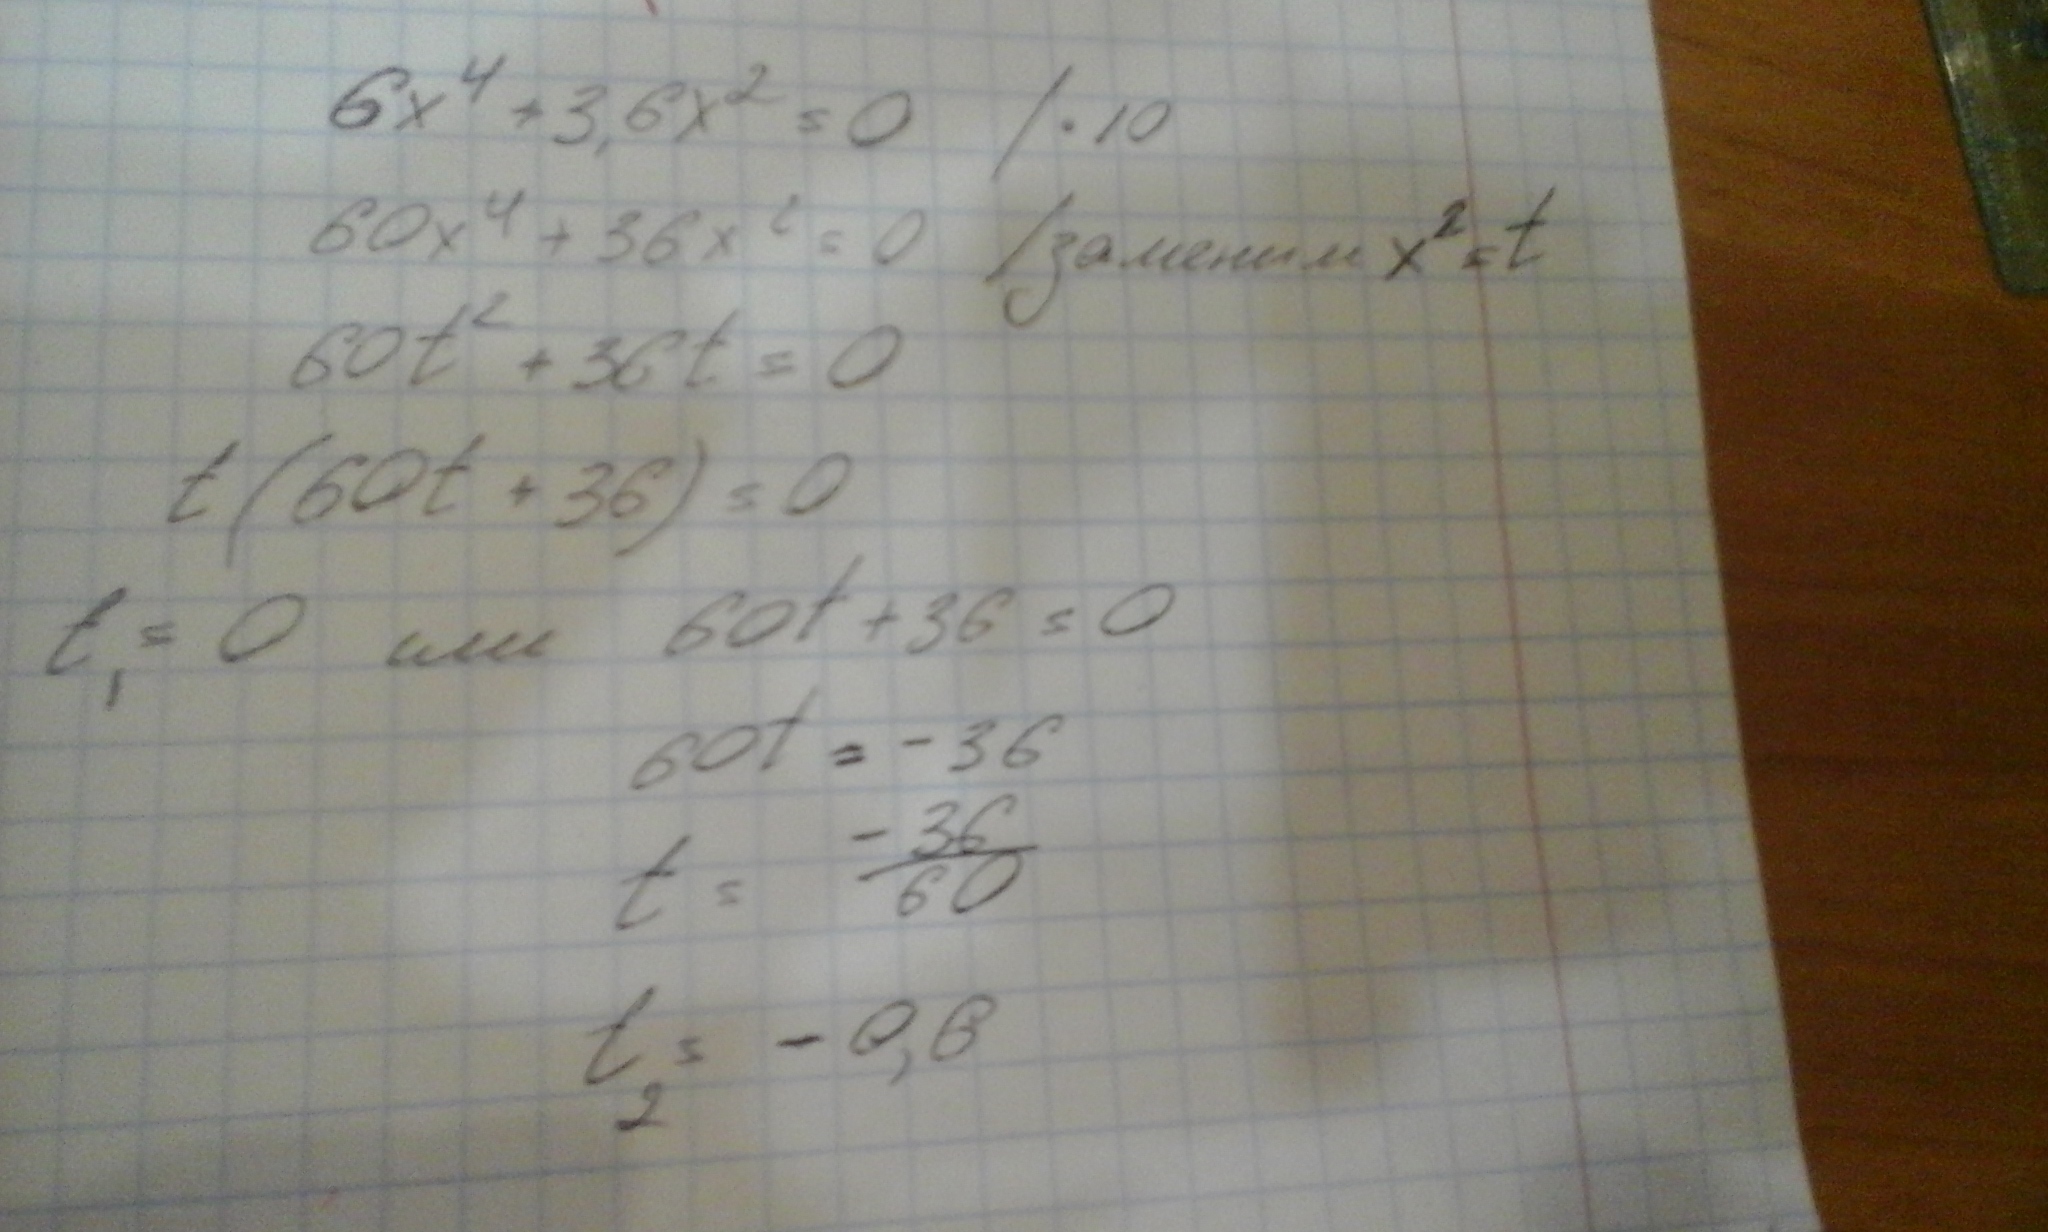 6x⁴ + 3,6x² = 0 /·10
60x⁴ + 36x² = 0 /заменим x² = t
60t² + 36t = 0
t(60t + 36) = 0
t₁ = 0 или 60t + 36 = 0
60t = -36
t = -36/60
t₂ = -0,6